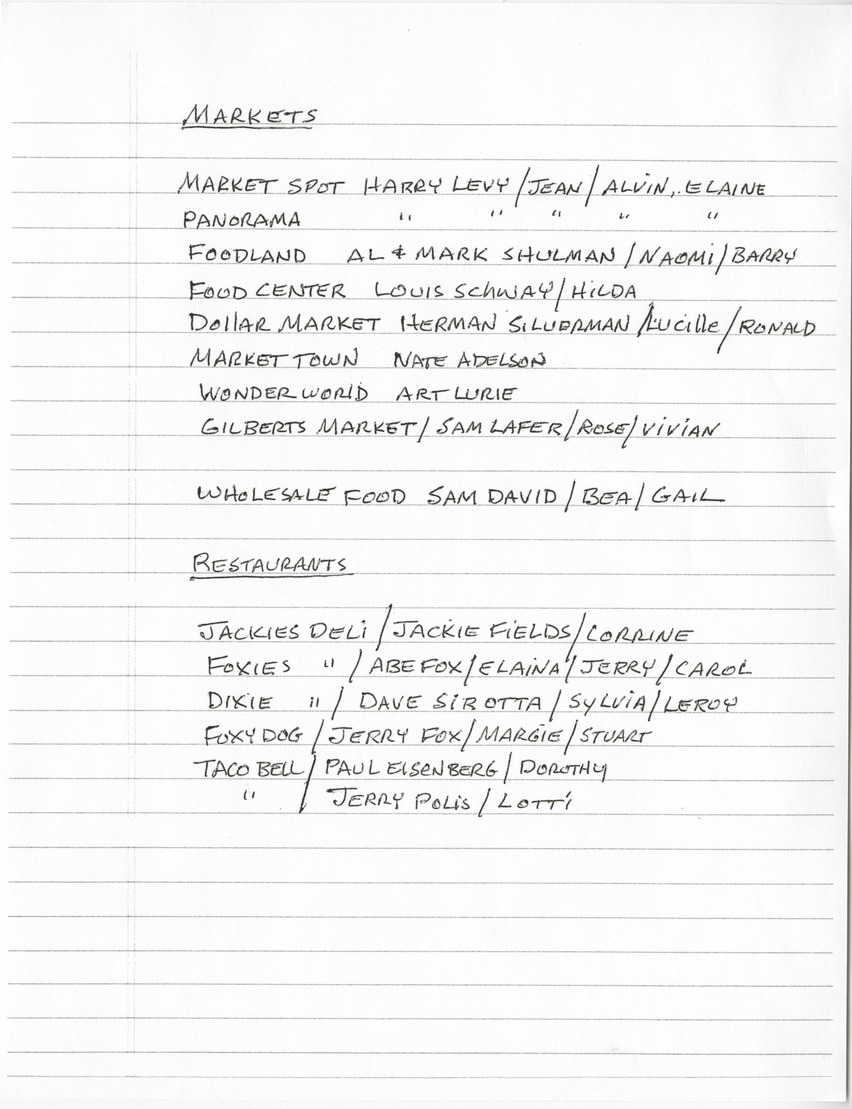 MARKETS
MARKET SPOT HARRY LEVY / JEAN / ALVIN, ELAINE
PANORAMA " " " " "
FOODLAND AL & MARK SHULMAN / NAOMI / BARRY
FOOD CENTER LOUIS SCHWAY / HILDA
DOLLAR MARKET HERMAN SILVERMAN / LUCILLE / RONALD
MARKET TOWN NATE ADELSON
WONDER WORLD ART LURIE
GILBERTS MARKET / SAM LAFER / ROSE / VIVIAN
WHOLESALE FOOD SAM DAVID / BEA / GAIL
RESTAURANTS
JACKIES DELI / JACKIE FIELDS / CORRINE
FOXIES " / ABE FOX / ELAINA / JERRY / CAROL
DIXIE " / DAVE SIROTTA / SYLVIA / LEROY
FOXY DOG / JERRY FOX / MARGIE / STUART
TACO BELL / PAUL EISENBERG / DOROTHY
" / JERRY POLIS / LOTTI